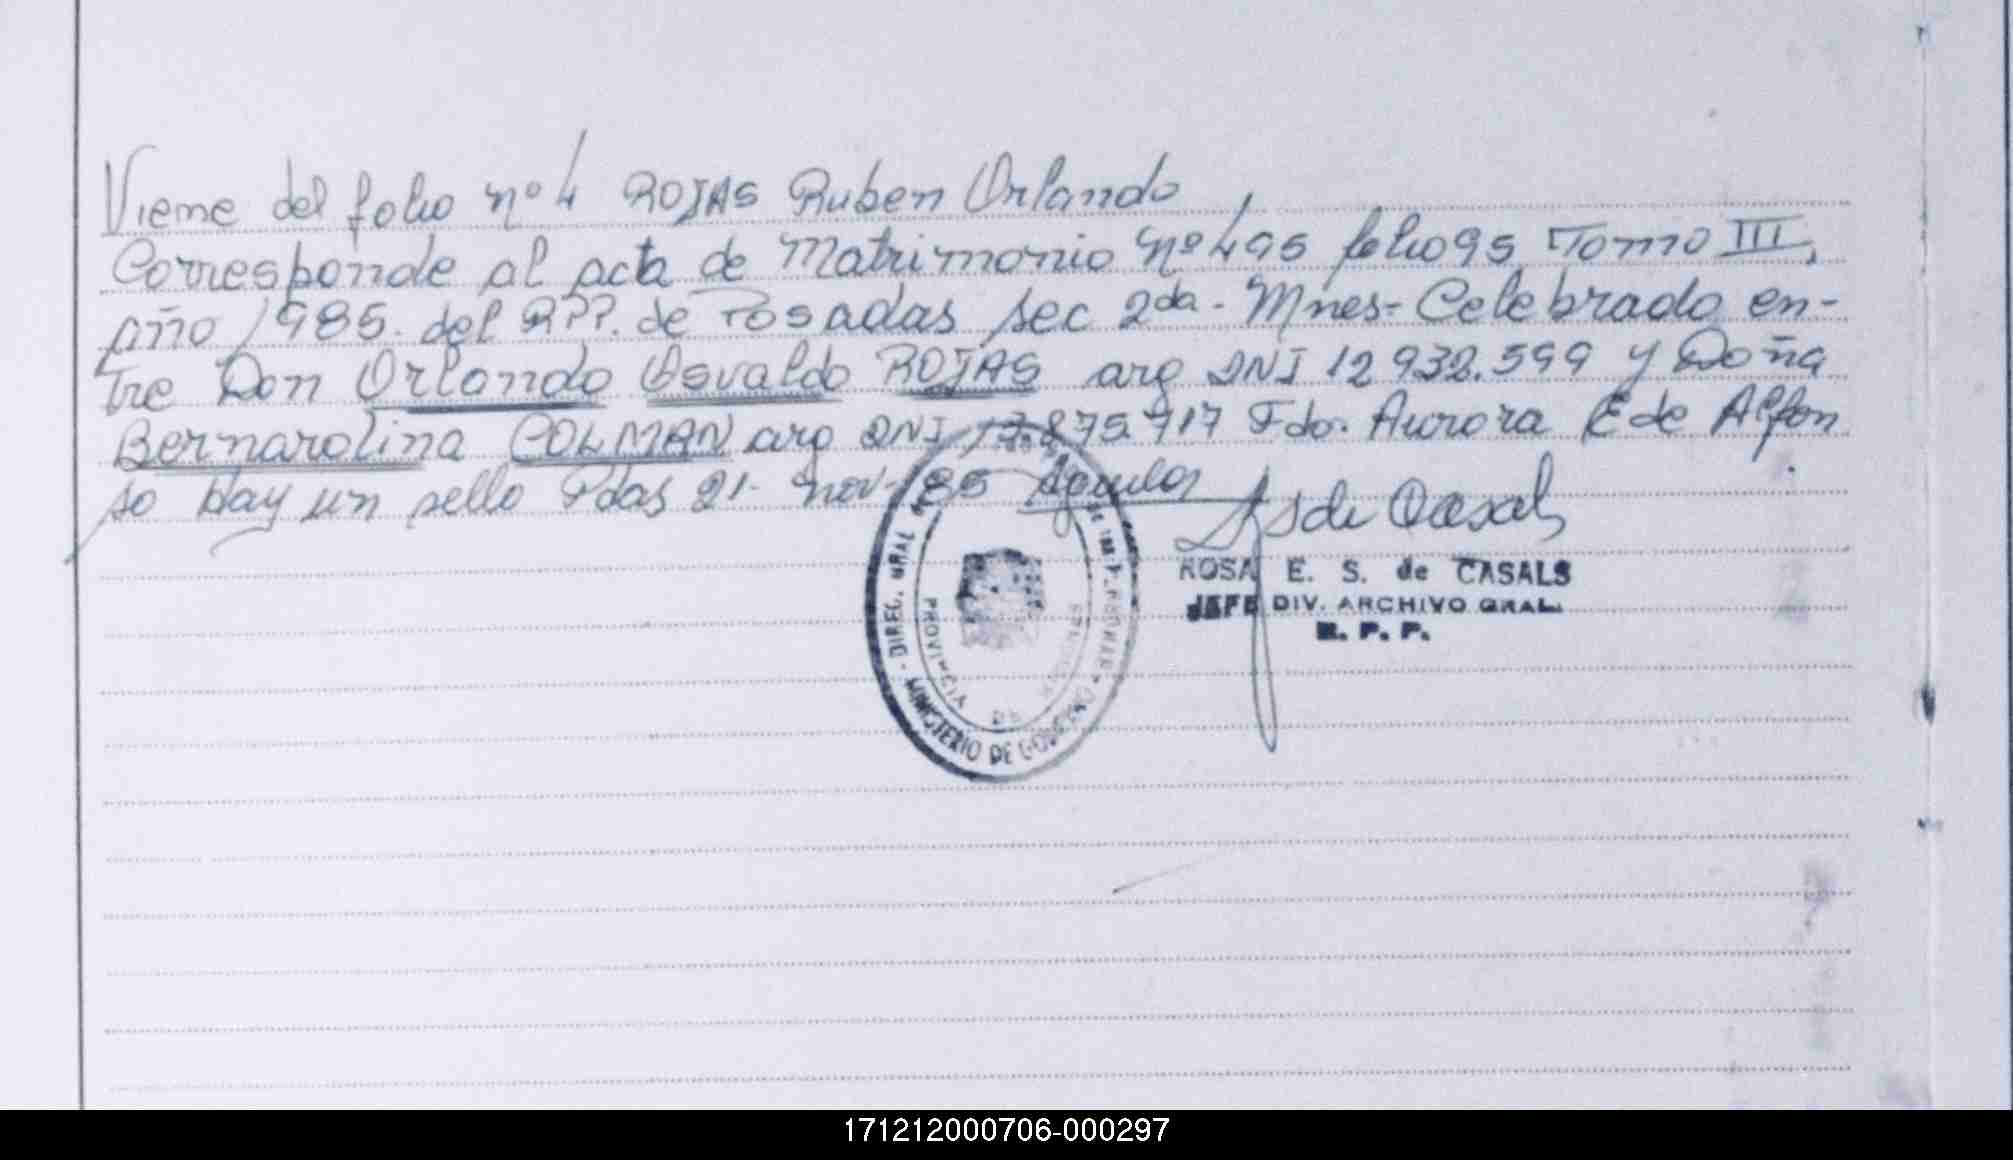 Viene del folio nº 4 ROJAS Ruben Orlando
Corresponde al acta de Matrimonio nº 495 folio 95 Tomo III,
año 1985. del RPP. de Posadas sec 2da - Mnes - Celebrado en-
tre Don Orlando Osvaldo ROJAS arg DNI 12 932.599 y Doña
Bernarolina COLMAN arg DNI 17.875.717 Fdo. Aurora E de Alfon
so Hay un sello Pdas 21 - nov - 85
S de Casals
ROSA E. S. de CASALS
JEFE DIV. ARCHIVO GRAL.
R. P. P.
DIREC. GRAL DE LAS PERSONAS
MINISTERIO DE GOBIERNO
PROVINCIA DE MISIONES
171212000706-000297